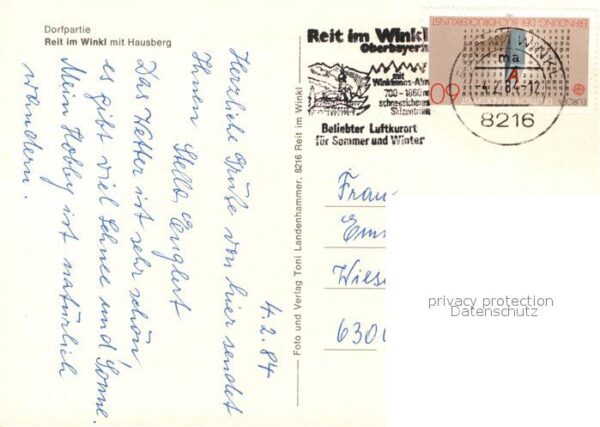 Dorfpartie
Reit im Winkl mit Hausberg
4.2.84
Herzliche Grüße von hier sendet
Ihnen
Stella Englert
Das Wetter ist sehr schön
es gibt viel Schnee und Sonne.
Mein Hobby ist natürlich
wandern.
Foto und Verlag Toni Landenhammer, 8216 Reit im Winkl
Reit im Winkl
Oberbayern
mit
Winklmoos-Alm
700-1860 m
schneesicheres
Skizentrum
Beliebter Luftkurort
für Sommer und Winter
REIT IM WINKL
ma
-4.2.84-12
8216
ERFINDUNG DER BUCHDRUCKERKUNST
A
60
EUROPA
DEUTSCHE BUNDESPOST
Frau
Wies
6300
privacy protection
Datenschutz